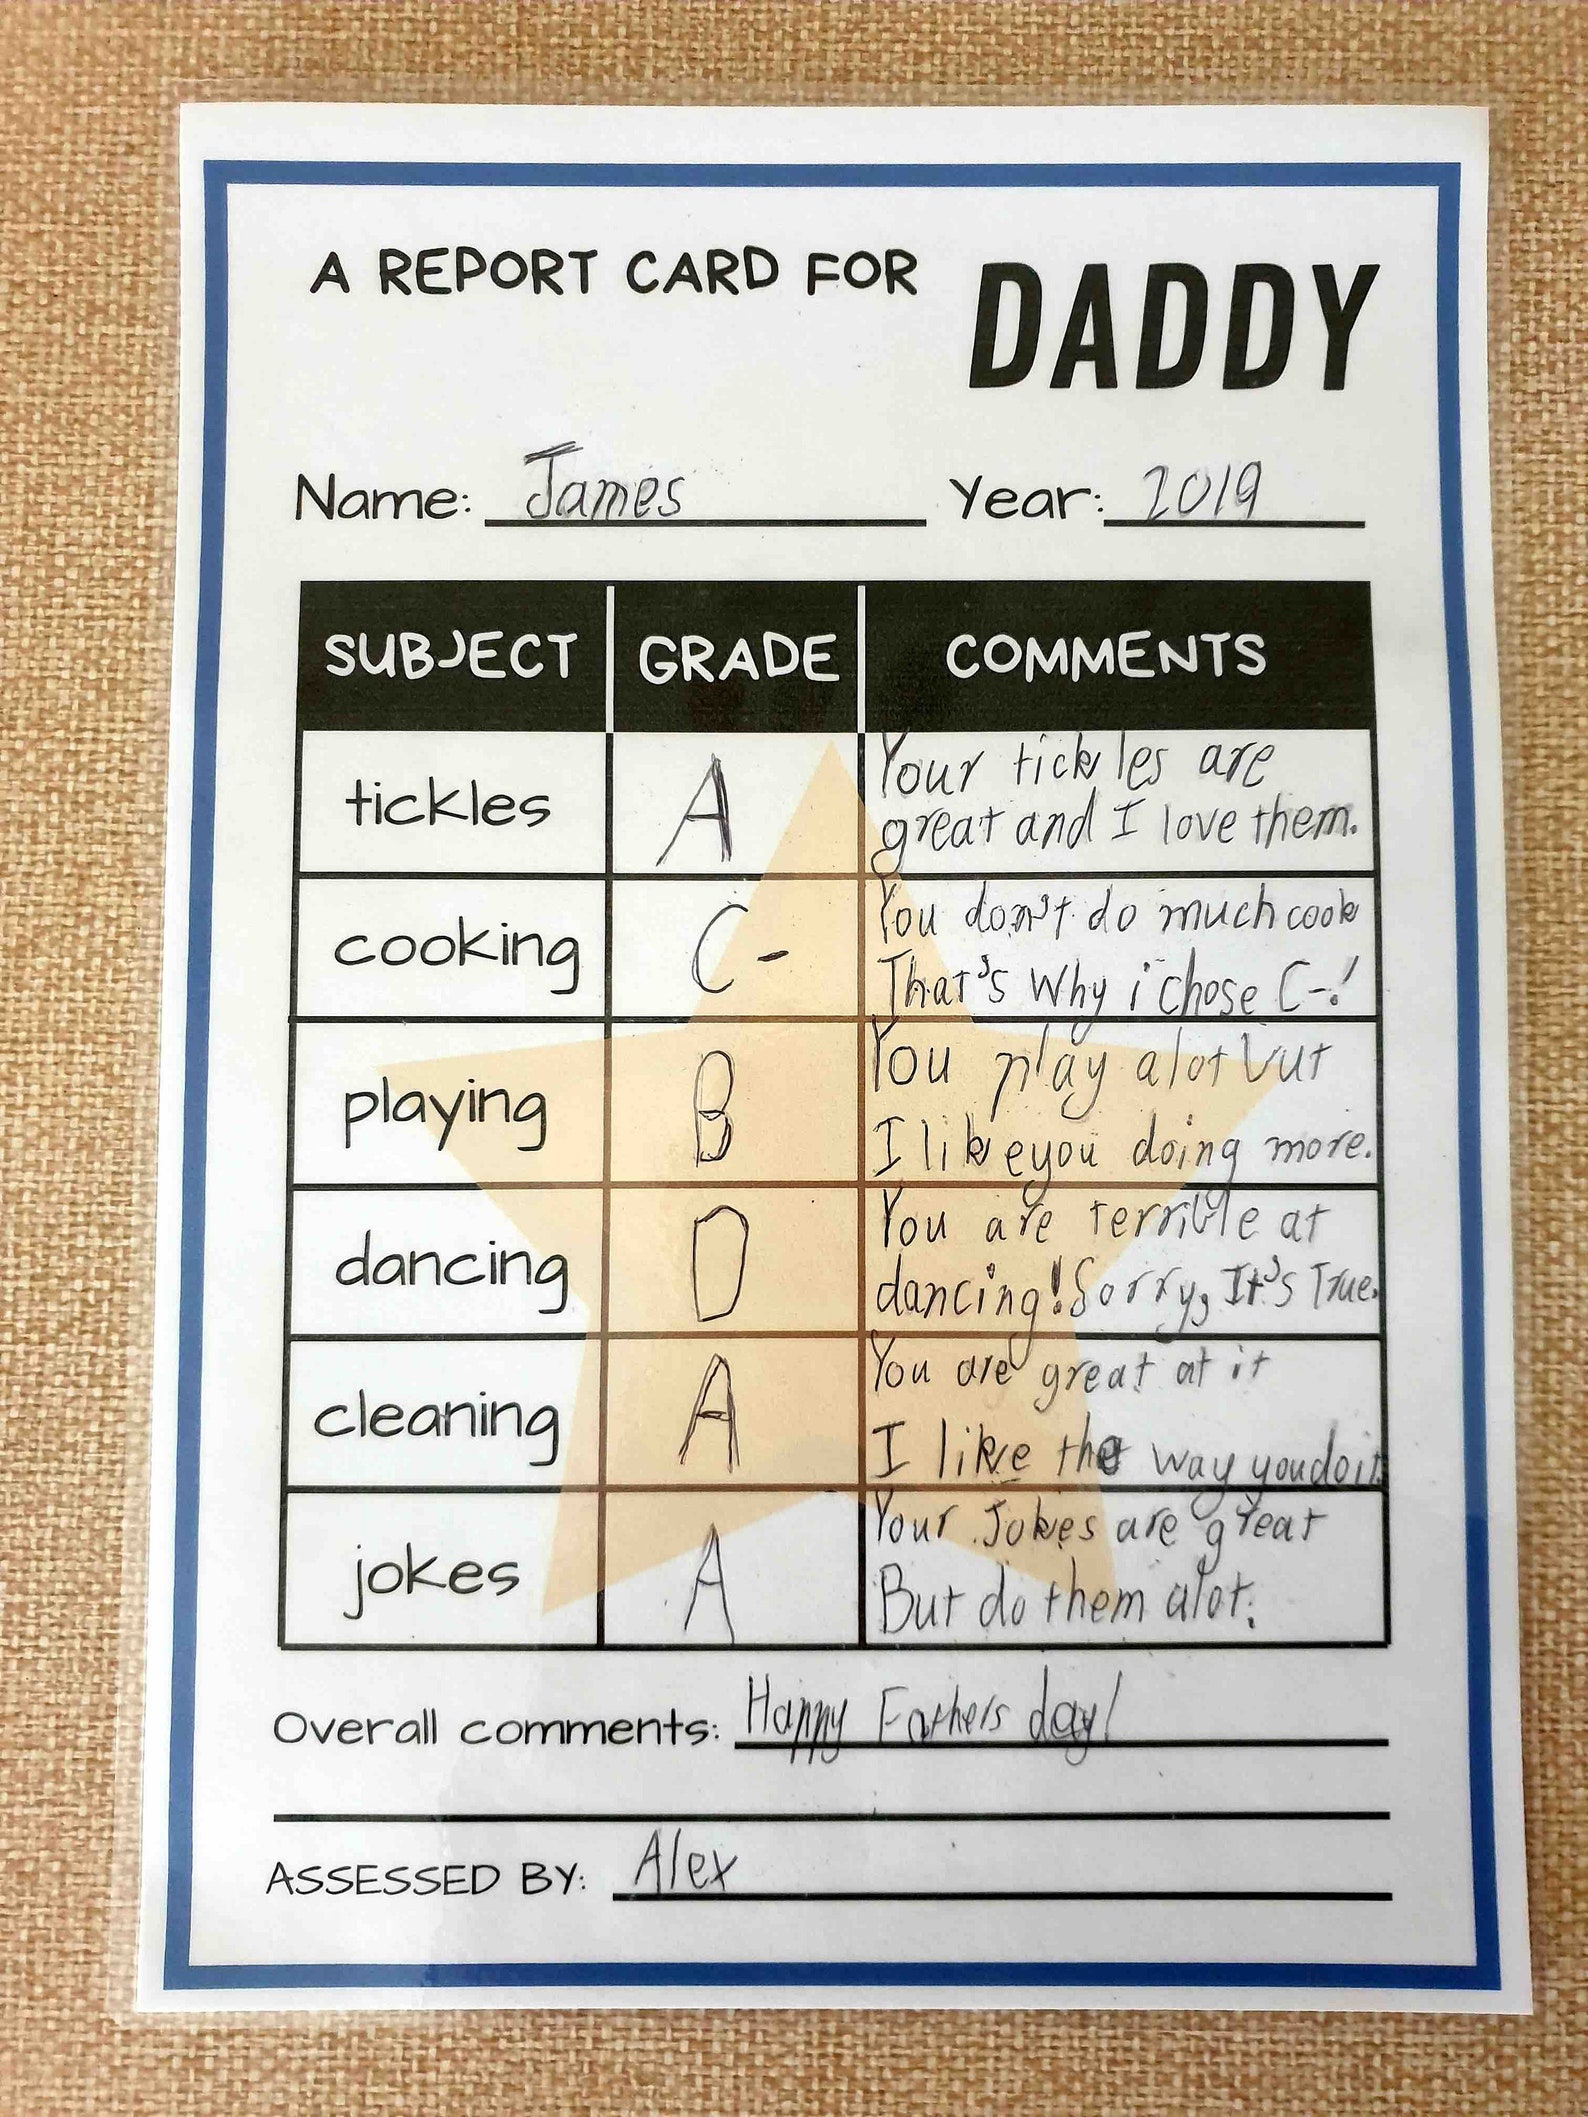 A REPORT CARD FOR DADDY
Name: James Year: 2019
SUBJECT GRADE COMMENTS
tickles A Your tickles are
great and I love them.
cooking C- You don't do much cook
That's Why i chose C-!
playing B You play alot but
I like you doing more.
dancing D You are terrible at
dancing! Sorry, It's True.
cleaning A You are great at it
I like the way you do it.
jokes A Your Jokes are great
But do them alot.
Overall comments: Happy Fathers day!
ASSESSED BY: Alex